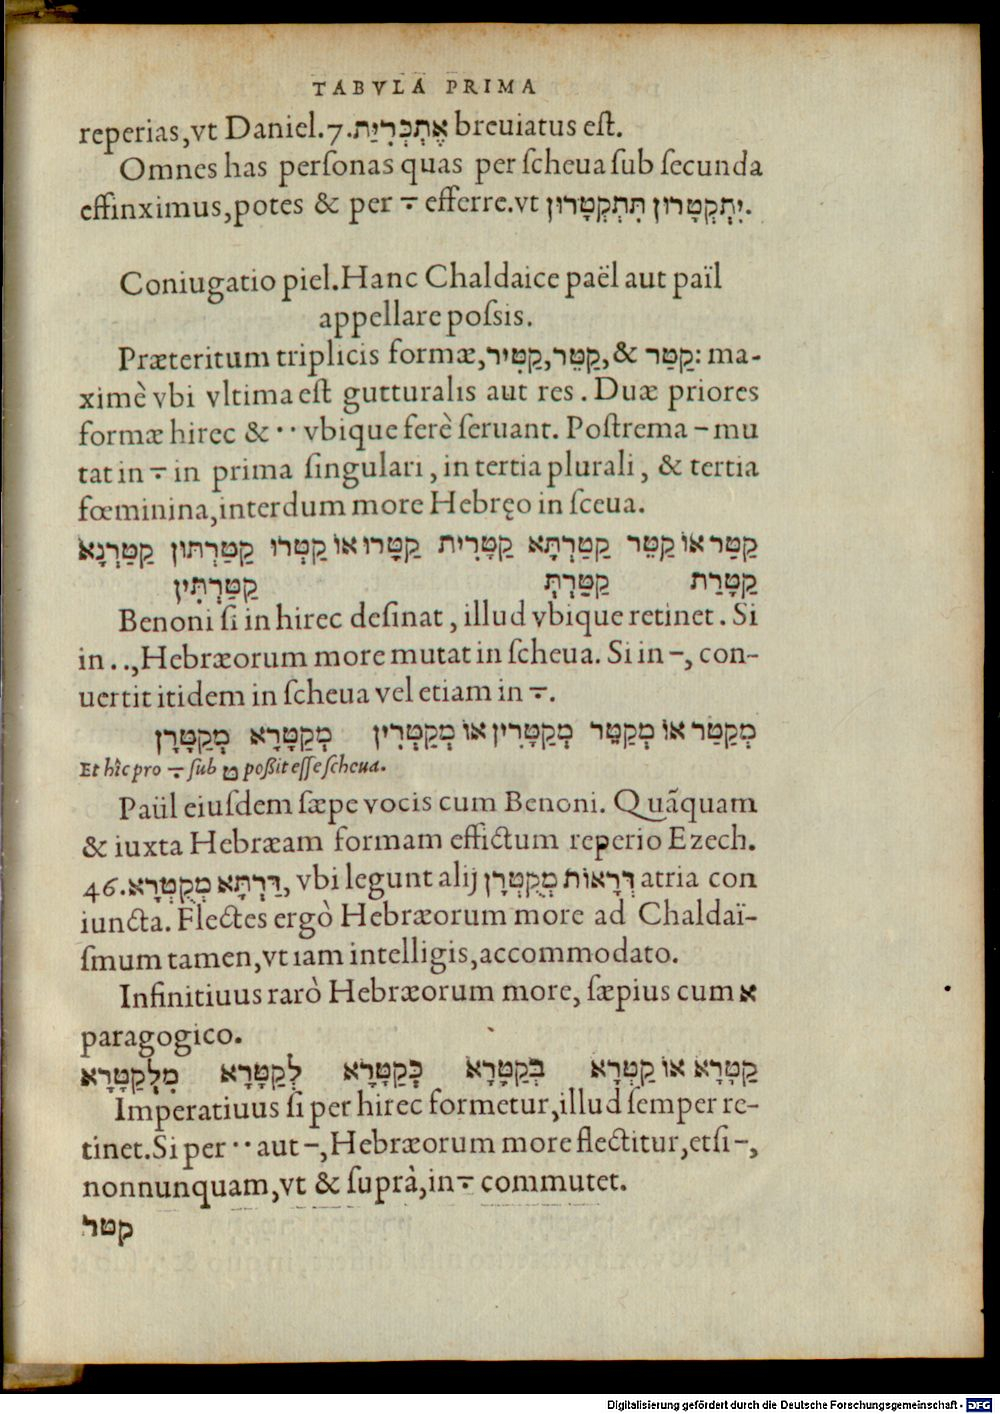 TABVLA PRIMA
reperias,vt Daniel.7.אֶתְכְּרִיַּת breuiatus eſt.
Omnes has perſonas quas per ſcheua ſub ſecunda
effinximus,potes & per ־ָ efferre.vt יִתְקְטָרוּן תִּתְקְטָרוּן.
Coniugatio piel.Hanc Chaldaice paël aut païl
appellare poſsis.
Præteritum triplicis formæ,קַטִּיר,קַטֵּר,& קַטַּר: ma-
ximè vbi vltima eſt gutturalis aut res. Duæ priores
formæ hirec & ·· vbique ferè ſeruant. Poſtrema – mu
tat in ־ָ in prima ſingulari, in tertia plurali, & tertia
fœminina,interdum more Hebręo in ſceua.
קַטַּר אוֹ קַטֵּר קַטַּרְתָּא קַטָּרִית קַטָּרוּ אוֹ קַטְּרוּ קַטַּרְתּוּן קַטַּרְנָא
קַטָּרַת קַטַּרְתְּ קַטַּרְתִּין
Benoni ſi in hirec deſinat, illud vbique retinet. Si
in ..,Hebræorum more mutat in ſcheua. Si in –, con-
uertit itidem in ſcheua vel etiam in ־ָ.
מְקַטַּר אוֹ מְקַטֵּר מְקַטָּרִין אוֹ מְקַטְּרִין מְקַטָּרָא מְקַטָּרָן
Et hîc pro ־ָ ſub ט poßit eſſe ſcheua.
Paül eiuſdem ſæpe vocis cum Benoni. Quãquam
& iuxta Hebræam formam effictum reperio Ezech.
46.דַּרְתָּא מְקֻטְּרָא, vbi legunt alij דְּרָאוֹת מְקֻטְּרָן atria con
iuncta. Flectes ergò Hebræorum more ad Chaldaï-
ſmum tamen,vt iam intelligis,accommodato.
Infinitiuus rarò Hebræorum more, ſæpius cum א
paragogico.
קַטָּרָא אוֹ קַטְּרָא בְּקַטָּרָא כְּקַטָּרָא לְקַטָּרָא מִלְּקַטָּרָא
Imperatiuus ſi per hirec formetur,illud ſemper re-
tinet.Si per ·· aut –,Hebræorum more flectitur,etſi –,
nonnunquam,vt & ſuprà,in ־ָ commutet.
קטל
Digitalisierung gefördert durch die Deutsche Forschungsgemeinschaft - DFG